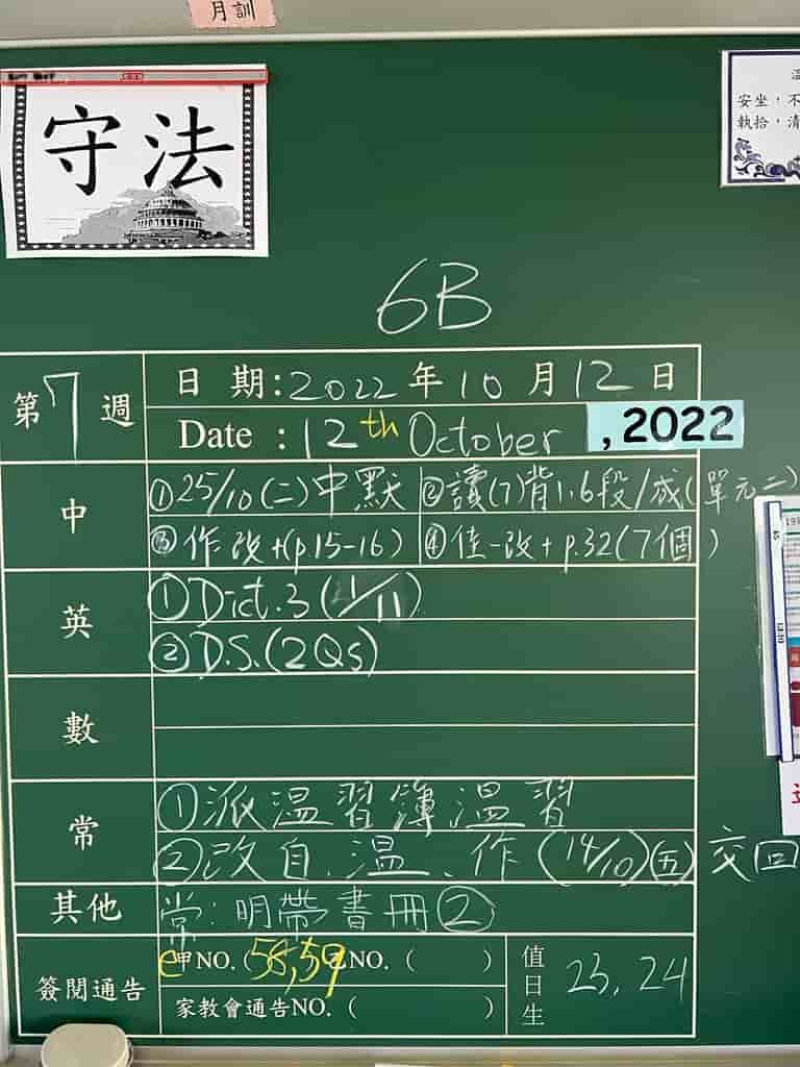 月訓
守法
安坐，不
執拾，清
6B
第7週
日期:2022年10月12日
Date : 12th October , 2022
中
①25/10(二)中默 ②讀(7)背1.6段/成(單元二)
③作改+(p.15-16) ④佳-改+p.32(7個)
英
①Dict.3(1/11)
②D.S.(2Qs)
數
常
①派温習簿温習
②改自、温、作(14/10)(五)交回
其他
常:明帶書冊②
簽閱通告
e甲NO.(58,59 乙NO.( )
家教會通告NO.( )
值日生
23, 24